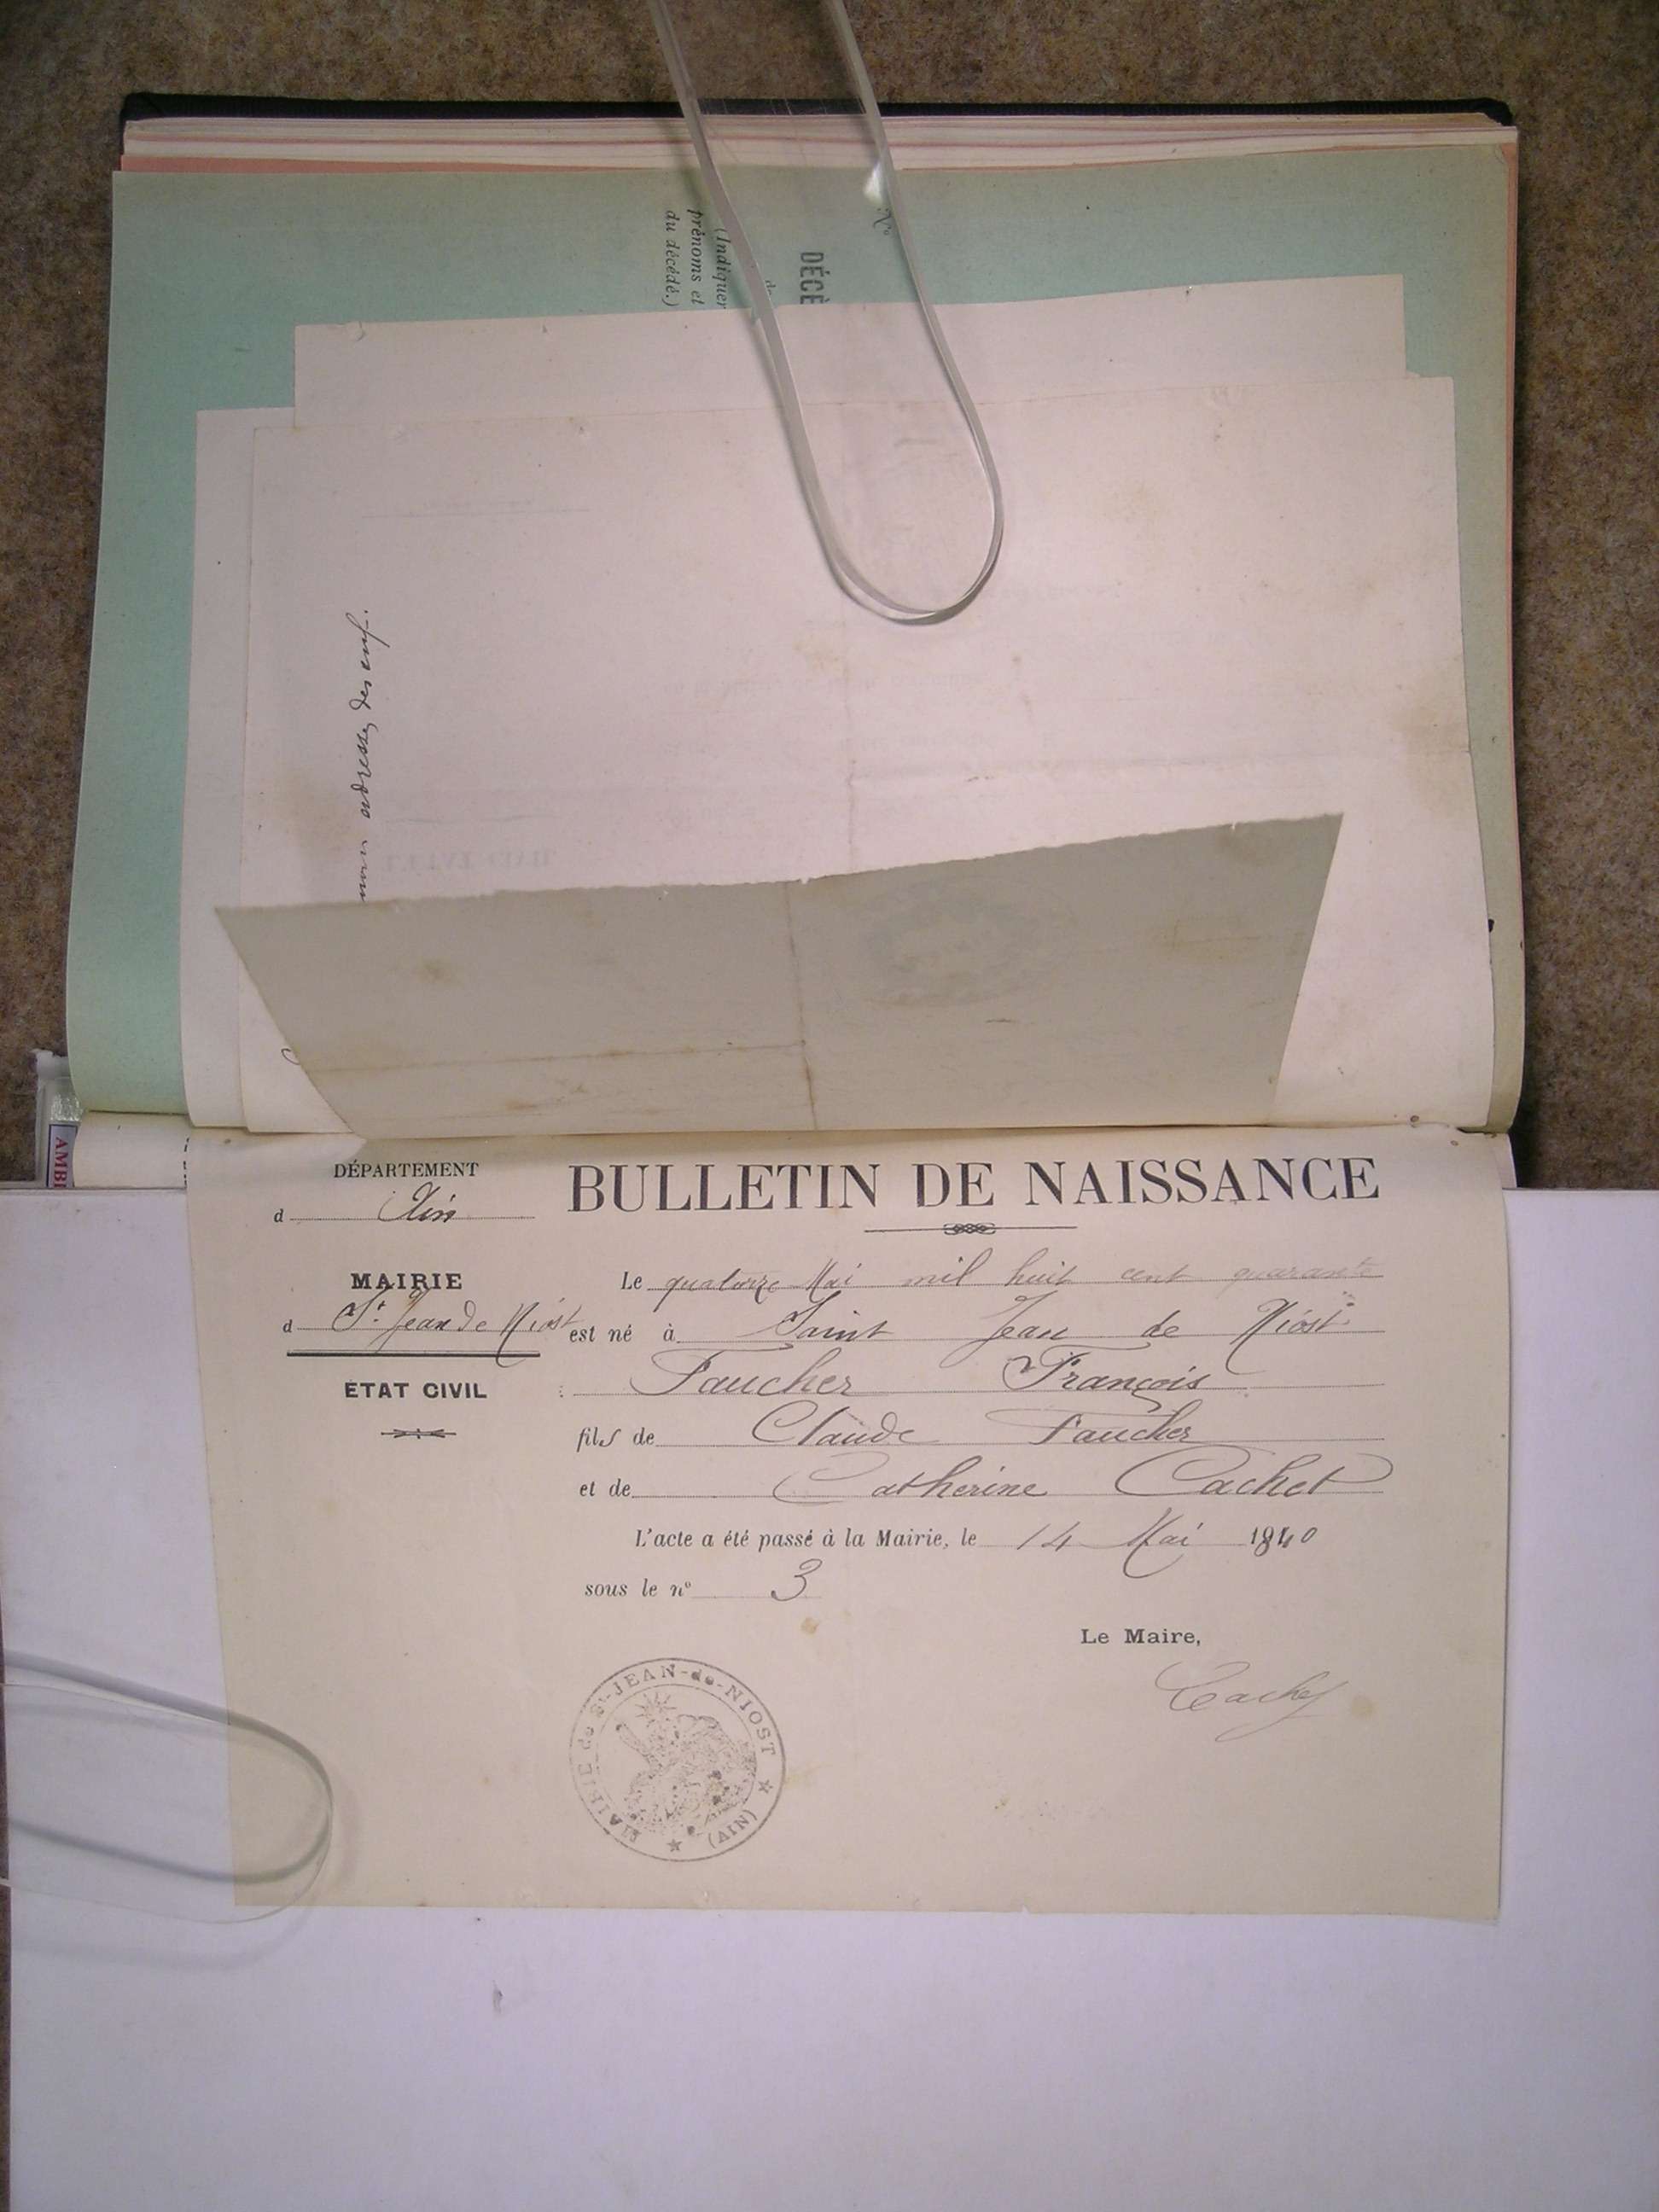 N°
DÉCÈ
de
(Indiquer
prénoms et
du décédé.)
adresses des enf.
AMBE
DÉPARTEMENT
d Ain
MAIRIE
d St. Jean de Niost
ETAT CIVIL
BULLETIN DE NAISSANCE
Le quatorze Mai mil huit cent quarante
est né à Saint Jean de Niost
Faucher François
fils de Claude Faucher
et de Catherine Cachet
L'acte a été passé à la Mairie, le 14 Mai 1840
sous le n° 3
Le Maire,
MAIRIE de St-JEAN-de-NIOST
(AIN)